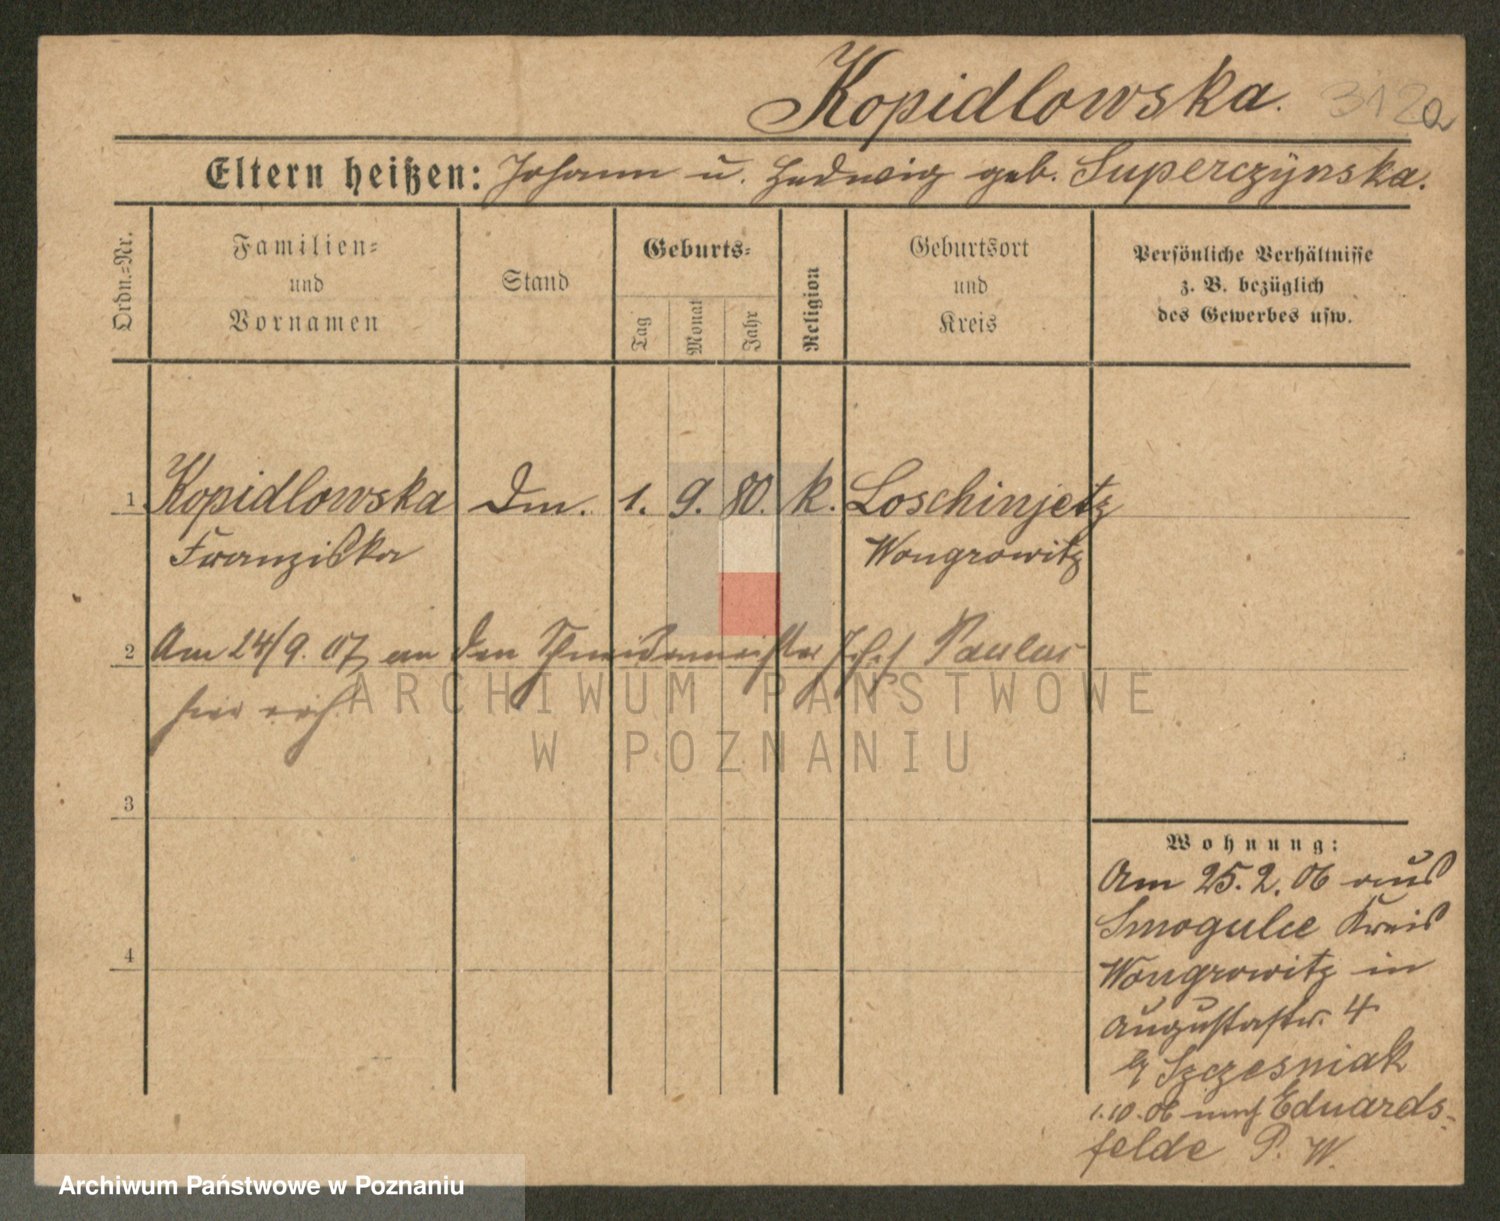 Kopidlowska. 312a
Eltern heißen: Johann u. Hedwig geb. Superczÿnska.
Ordn.-Nr.
Familien-
und
Vornamen
Stand
Geburts-
Tag
Monat
Jahr
Religion
Geburtsort
und
Kreis
Persönliche Verhältnisse
z. B. bezüglich
des Gewerbes usw.
1 Kopidlowska Dm. 1. 9. 80. k. Loschinjetz
Franziska Wongrowitz
2 Am 24/9. 07 an den Schneidermeister Josef Paulus
hier verh.
3
4
Wohnung:
Am 25.2.06 aus
Smogulce Kreis
Wongrowitz in
Augustastr. 4
b/ Szczesniak
1.10.06 nach Eduards-
felde P. W.
ARCHIWUM PAŃSTWOWE
W POZNANIU
Archiwum Państwowe w Poznaniu